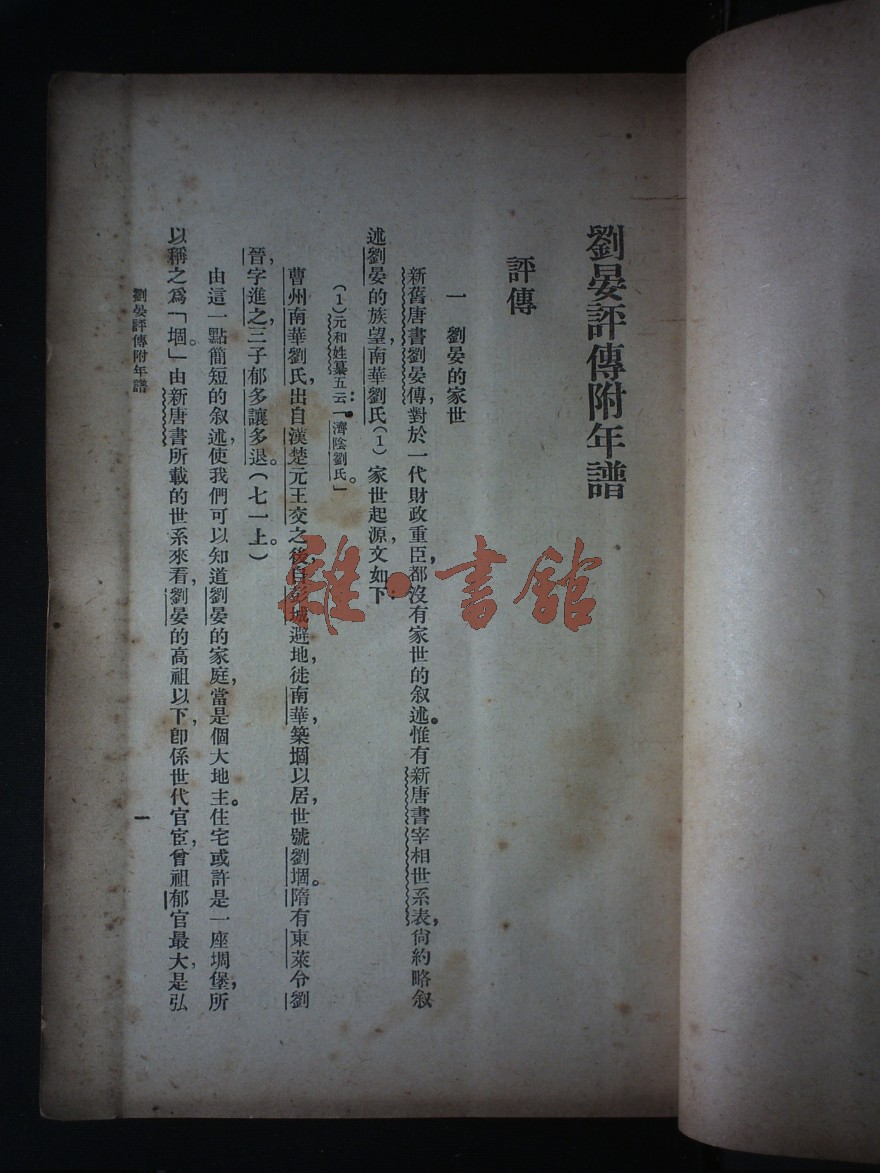 劉晏評傳附年譜
評傳
一　劉晏的家世
新舊唐書劉晏傳，對於一代財政重臣，都沒有家世的叙述。惟有新唐書宰相世系表，尙約略叙
述劉晏的族望，南華劉氏(1)家世起源，文如下：
(1)元和姓纂五云：「濟陰劉氏。」
曹州南華劉氏，出自漢楚元王交之後，自彭城避地徙南華，築堌以居，世號劉堌。隋有東萊令劉
晉，字進之，三子郁多讓多退。(七一上。)
由這一點簡短的叙述，使我們可以知道劉晏的家庭，當是個大地主。住宅或許是一座堌堡，所
以稱之爲「堌」。由新唐書所載的世系來看，劉晏的高祖以下，卽係世代官宦，曾祖郁官最大，是弘
劉晏評傳附年譜
一
雜·書館